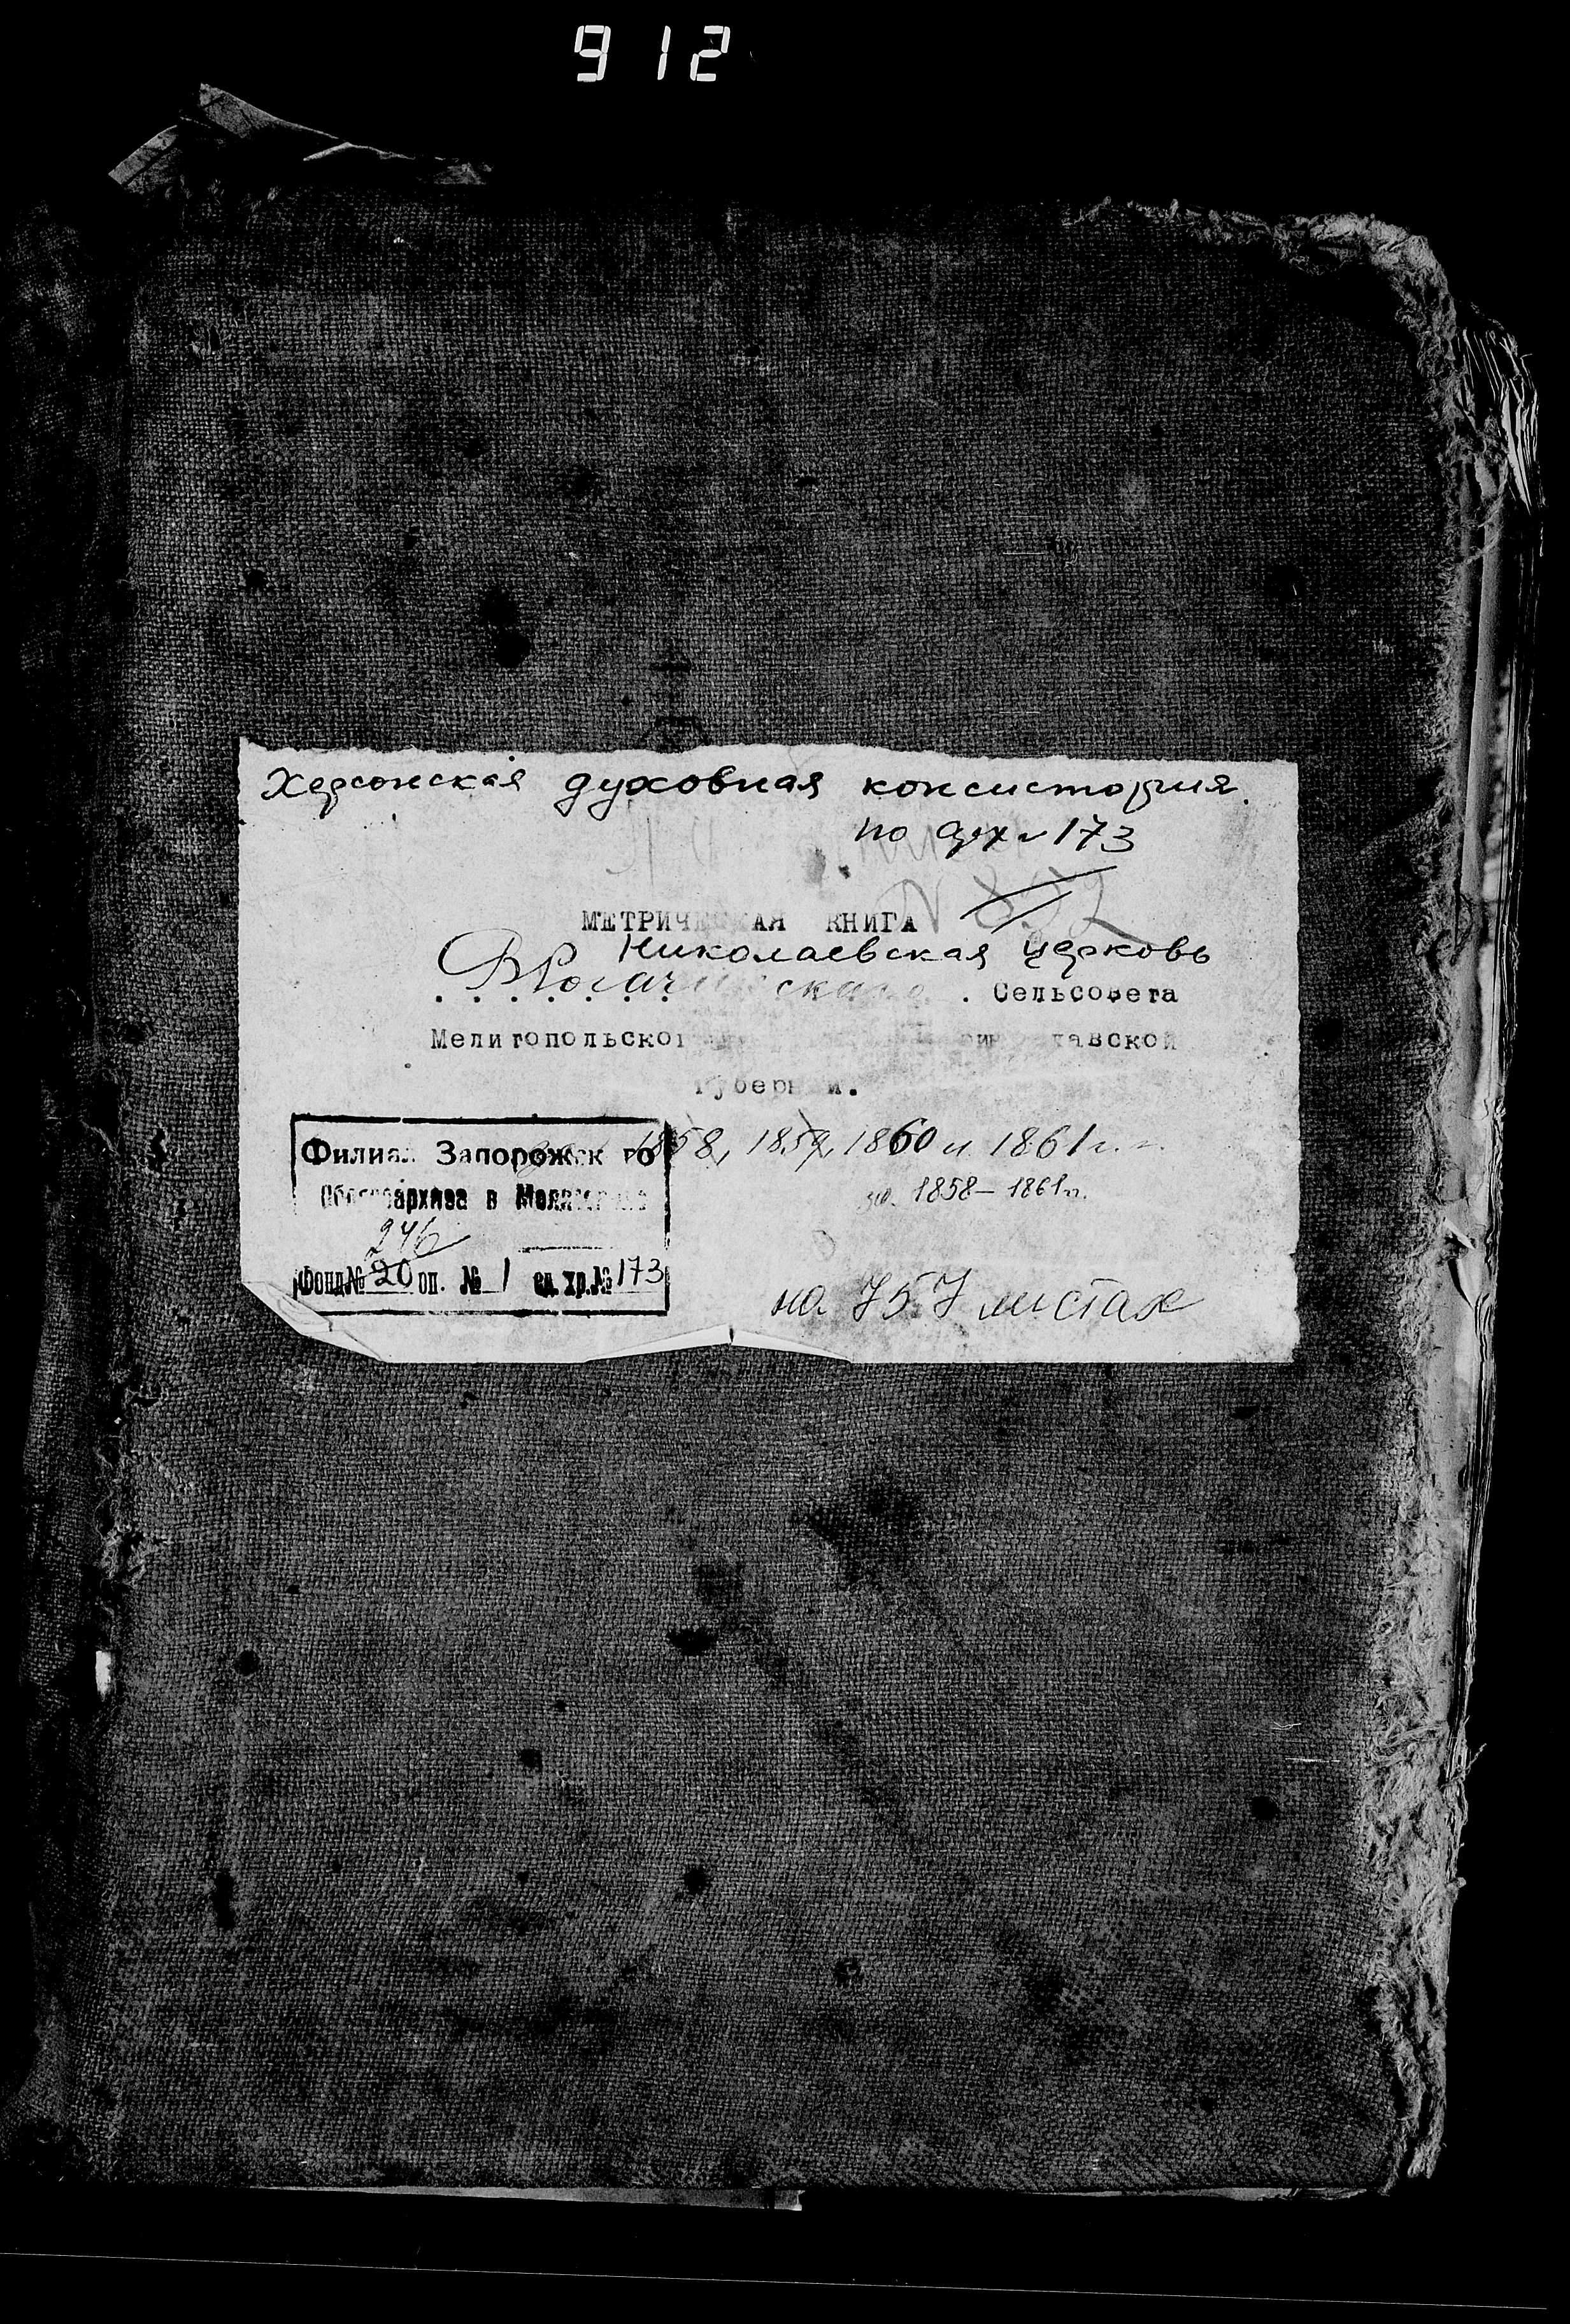 912
Херсонская духовная консистория
по арх № 173
МЕТРИЧЕСКАЯ КНИГА
Николаевская церковь
Сельсовета
Мелитопольског
губернии.
1858, 1859, 1860 и 1861 г.
1858 - 1861 гг.
Филиал Запорожского
Облгосархива в Мелитополе
246
Фонд № 20 оп. № 1 ед. хр. № 173
на 757 листах